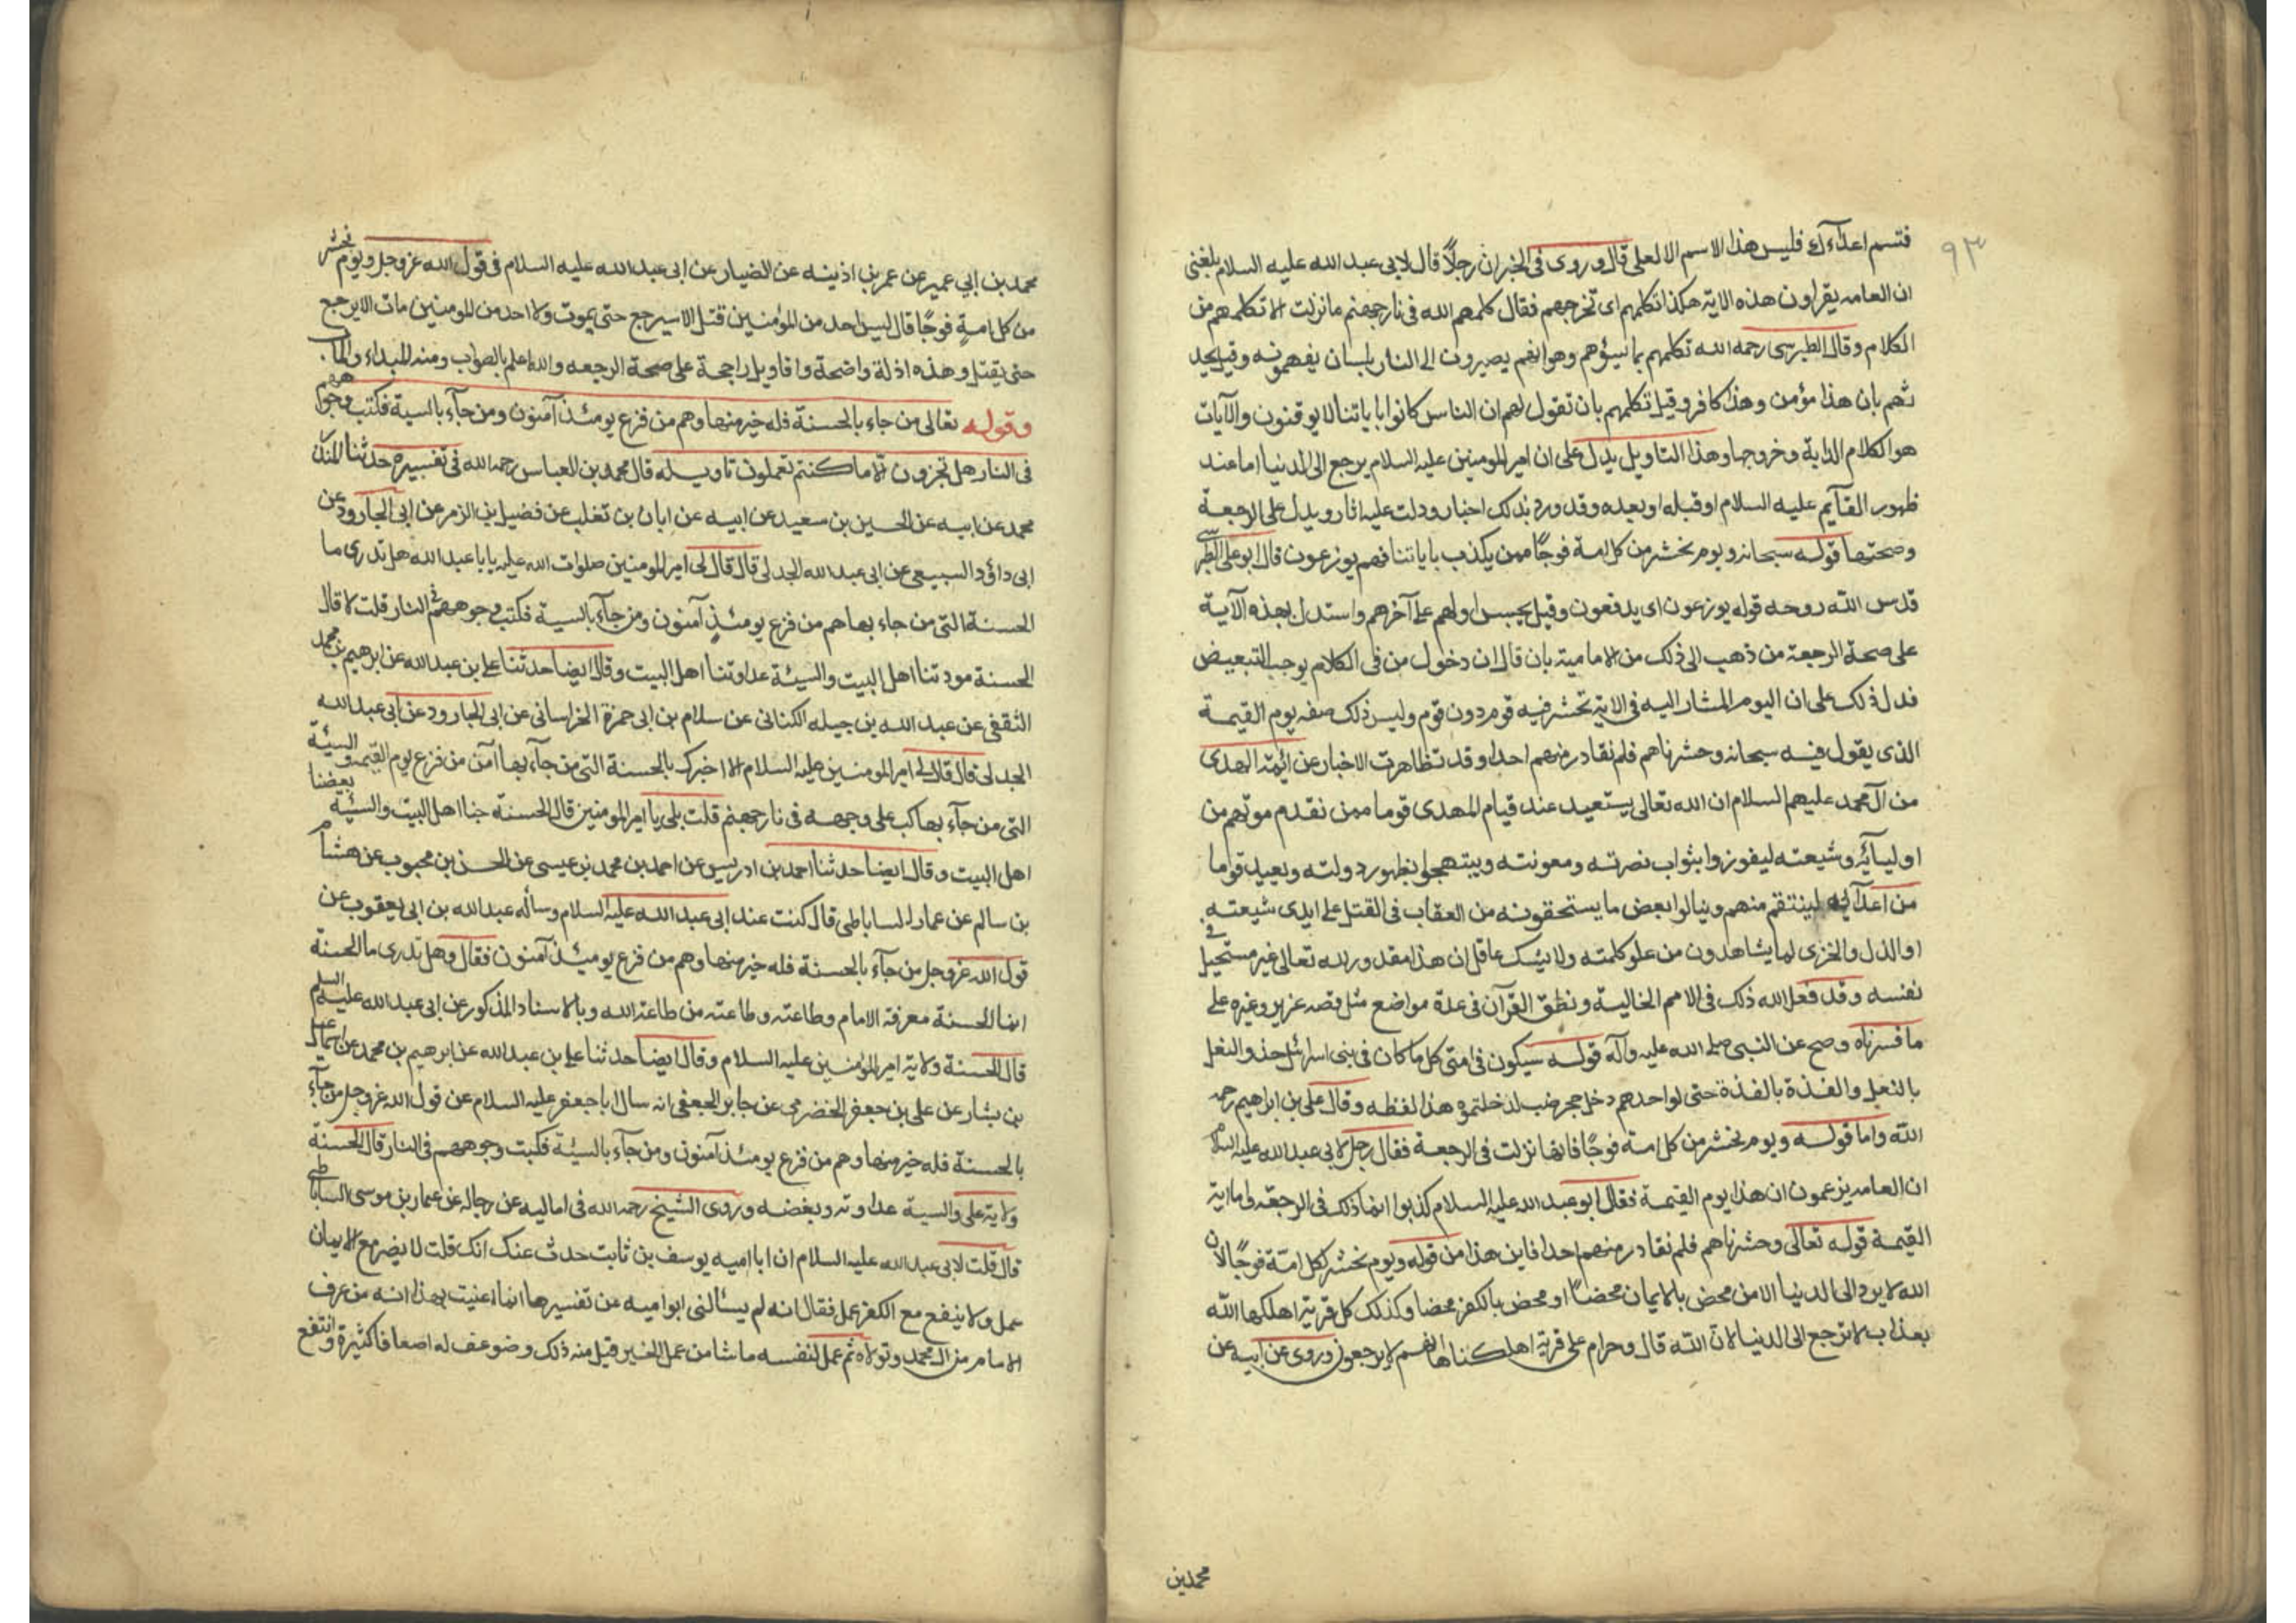 ٩٣
فتسم اعداءك فليس هذا الاسم الا لعلى قال وروى فى الخبر ان رجلاً قال لابى عبد الله عليه السلام بلغنى
ان العامه يقراون هذه الاية هكذا تكلمهم اى تخرجهم فقال كلمهم الله فى نار جهنم مانزلت الا تكلمهم من
الكلام وقال الطبرسى رحمه الله تكلمهم بما يسؤهم وهو انهم يصيرون الى النار بلسان يفهمونه وقيل يحد
ثهم بان هذا مؤمن وهذا كافر وقيل تكلمهم بان تقول لهم ان الناس كانوا باياتنا لا يوقنون والآيات
هو اكلام الدابة وخروجها وهذا التاويل يدل على ان امير المومنين عليه السلام يرجع الى الدنيا اما عند
ظهور القآيم عليه السلام او قبله او بعده وقد ورد بذلك اخبار ودلت عليه اثار ويدل على الرجعة
وصحتها قوله سبحانه ويوم نحشر من كل امة فوجًا ممن يكذب باياتنا فهم يوزعون قال ابو على الطبرسى
قدس الله روحه قوله يوزعون اى يدفعون وقيل يحبس اولهم على آخرهم واستدل بهذه الآية
على صحة الرجعة من ذهب الى ذلك من الامامية بان قال ان دخول من فى الكلام يوجب التبعيض
فدل ذلك على ان اليوم المشار اليه فى الاية تحشر فيه قوم دون قوم وليس ذلك صفه يوم القيمة
الذى يقول فيه سبحانه وحشرناهم فلم نغادر منهم احدا وقد تظاهرت الاخبار عن ائمة الهدى
من آل محمد عليهم السلام ان الله تعالى يستعيد عند قيام المهدى قوما ممن تقدم موتهم من
اوليآئه وشيعته ليفوزوا بثواب نصرته ومعونته ويبتهجوا بظهور دولته ويعيد قوما
من اعدآيه لينتقم منهم وينالوا بعض ما يستحقونه من العقاب فى القتل على ايدى شيعته
او الذل والخزى لما يشاهدون من علو كلمته ولا يشك عاقل ان هذا مقدور لله تعالى غير مستحيل فى
نفسه وقد فعل الله ذلك فى الامم الخالية ونطق القرآن فى عدة مواضع مثل قصه عزير وغيره على
ما فسرناه وصح عن النبى صلى الله عليه وآله قوله سيكون فى امتى كل ما كان فى بنى اسرائيل حذو النعل
بالنعل والقذة بالقذة حتى لو احدهم دخل جحر ضب لدخلتموه هذا لفظه وقال على بن ابراهيم رحمه
الله واما قوله ويوم نحشر من كل امة فوجًا فانها نزلت فى الرجعة فقال رجل لابى عبد الله عليه السلام
ان العامه يزعمون ان هذا يوم القيمة فقال ابو عبد الله عليه السلام كذبوا انما ذلك فى الرجعه واما اية
القيمة قوله تعالى وحشرناهم فلم نغادر منهم احدا فاين هذا من قوله ويوم نحشر كل امّة فوجًا لان
الله لا يرد الى الدنيا الا من محض بالايمان محضًا او محض بالكفر محضا وكذلك كل قرية اهلكها الله
بعذاب لا ترجع الى الدنيا لان الله قال وحرام على قرية اهلكناها انهم لا يرجعون وروى عن ابيه عن
محمد بن
محمد بن ابي عمير عن عمر بن اذينه عن الضيار عن ابى عبد الله عليه السلام فى قول الله عز وجل ويوم نحشر
من كل امةٍ فوجًا قال ليس احد من المؤمنين قتل الا سيرجع حتى يموت ولا احد من المومنين مات الا يرجع
حتى يقتل وهذه ادلة واضحة واقاويل راجحة على صحة الرجعه والله اعلم بالصواب ومنه المبداء والمآب
وقوله تعالى من جاء بالحسنة فله خير منها وهم من فزع يومئذ آمنون ومن جآء بالسية فكبت وجوههم
فى النار هل تجزون الا ما كنتم تعملون تاويله قال محمد بن العباس رحمه الله فى تفسيره حدثنا المنذر
محمد عن ابيه عن الحسين بن سعيد عن ابيه عن ابان بن تغلب عن فضيل بن الزمر عن ابى الجارود عن
ابى داؤد السبيعى عن ابى عبد الله الجدلى قال قال لى امير المومنين صلوات الله عليه يابا عبد الله هل تدرى ما
الحسنة التى من جاء بها هم من فزع يومئذٍ آمنون ومن جآء بالسية فكبت وجوههم فى النار قلت لا قال
الحسنة مودتنا اهل البيت والسيئة عداوتنا اهل البيت وقال ايضا حدثنا على بن عبد الله عن ابرهيم بن محمد
الثقفى عن عبد الله بن جبله الكنانى عن سلام بن ابى حمزة الخراسانى عن ابى الجارود عن ابى عبد الله
الجدلى قال قال لى امير المومنين عليه السلام الا اخبرك بالحسنة التى من جآء بها آمن من فزع يوم القيمه و السيئة
التى من جآء بها كب على وجهه فى نار جهنم قلت بلى يا امير المومنين قال الحسنة حبنا اهل البيت والسيئه بغضنا
اهل البيت وقال ايضا حدثنا احمد بن ادريس عن احمد بن محمد بن عيسى عن الحسن بن محبوب عن هشام
بن سالم عن عمار الساباطى قال كنت عند ابى عبد الله عليه السلام وسأله عبد الله بن ابى يعقوب عن
قول الله عز وجل من جآء بالحسنة فله خير منها وهم من فزع يومئذ آمنون فقال وهل تدرى ما الحسنة
انما الحسنة معرفة الامام وطاعته وطاعته من طاعة الله وبالاسناد المذكور عن ابى عبد الله عليه السلم
قال الحسنة ولاية امير المؤمنين عليه السلام وقال ايضا حدثنا على بن عبد الله عن ابرهيم بن محمد عن اسماعيل
بن بشار عن على بن جعفر الحضرمى عن جابر الجعفى انه سال ابا جعفر عليه السلام عن قول الله عز وجل من جآء
بالحسنة فله خير منها وهم من فزع يومئذ آمنون ومن جآء بالسيئة فكبت وجوههم فى النار قال الحسنة
ولاية على والسية عداوته وبغضه وروى الشيخ رحمه الله فى اماليه عن رجاله عن عمار بن موسى الساباطى
قال قلت لابى عبد الله عليه السلام ان ابا اميه يوسف بن ثابت حدث عنك انك قلت لا يضر مع الايمان
عمل ولا ينفع مع الكفر عمل فقال انه لم يسألنى ابو اميه عن تفسيرها انما عنيت بهذا انه من عرف
الامام من آل محمد وتولاه ثم عمل لنفسه ما شا من عمل الخير قبل منه ذلك وضوعف له اضعافا كثيرة وانتفع